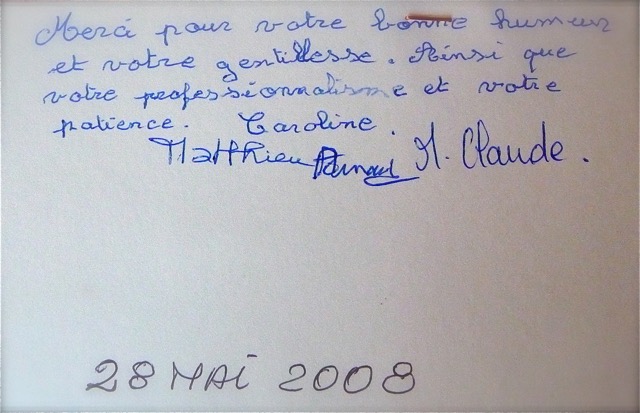 Merci pour votre bonne humeur
et votre gentillesse. Ainsi que
votre professionnalisme et votre
patience. Caroline.
Matthieu Arnaud M. Claude.
28 MAI 2008